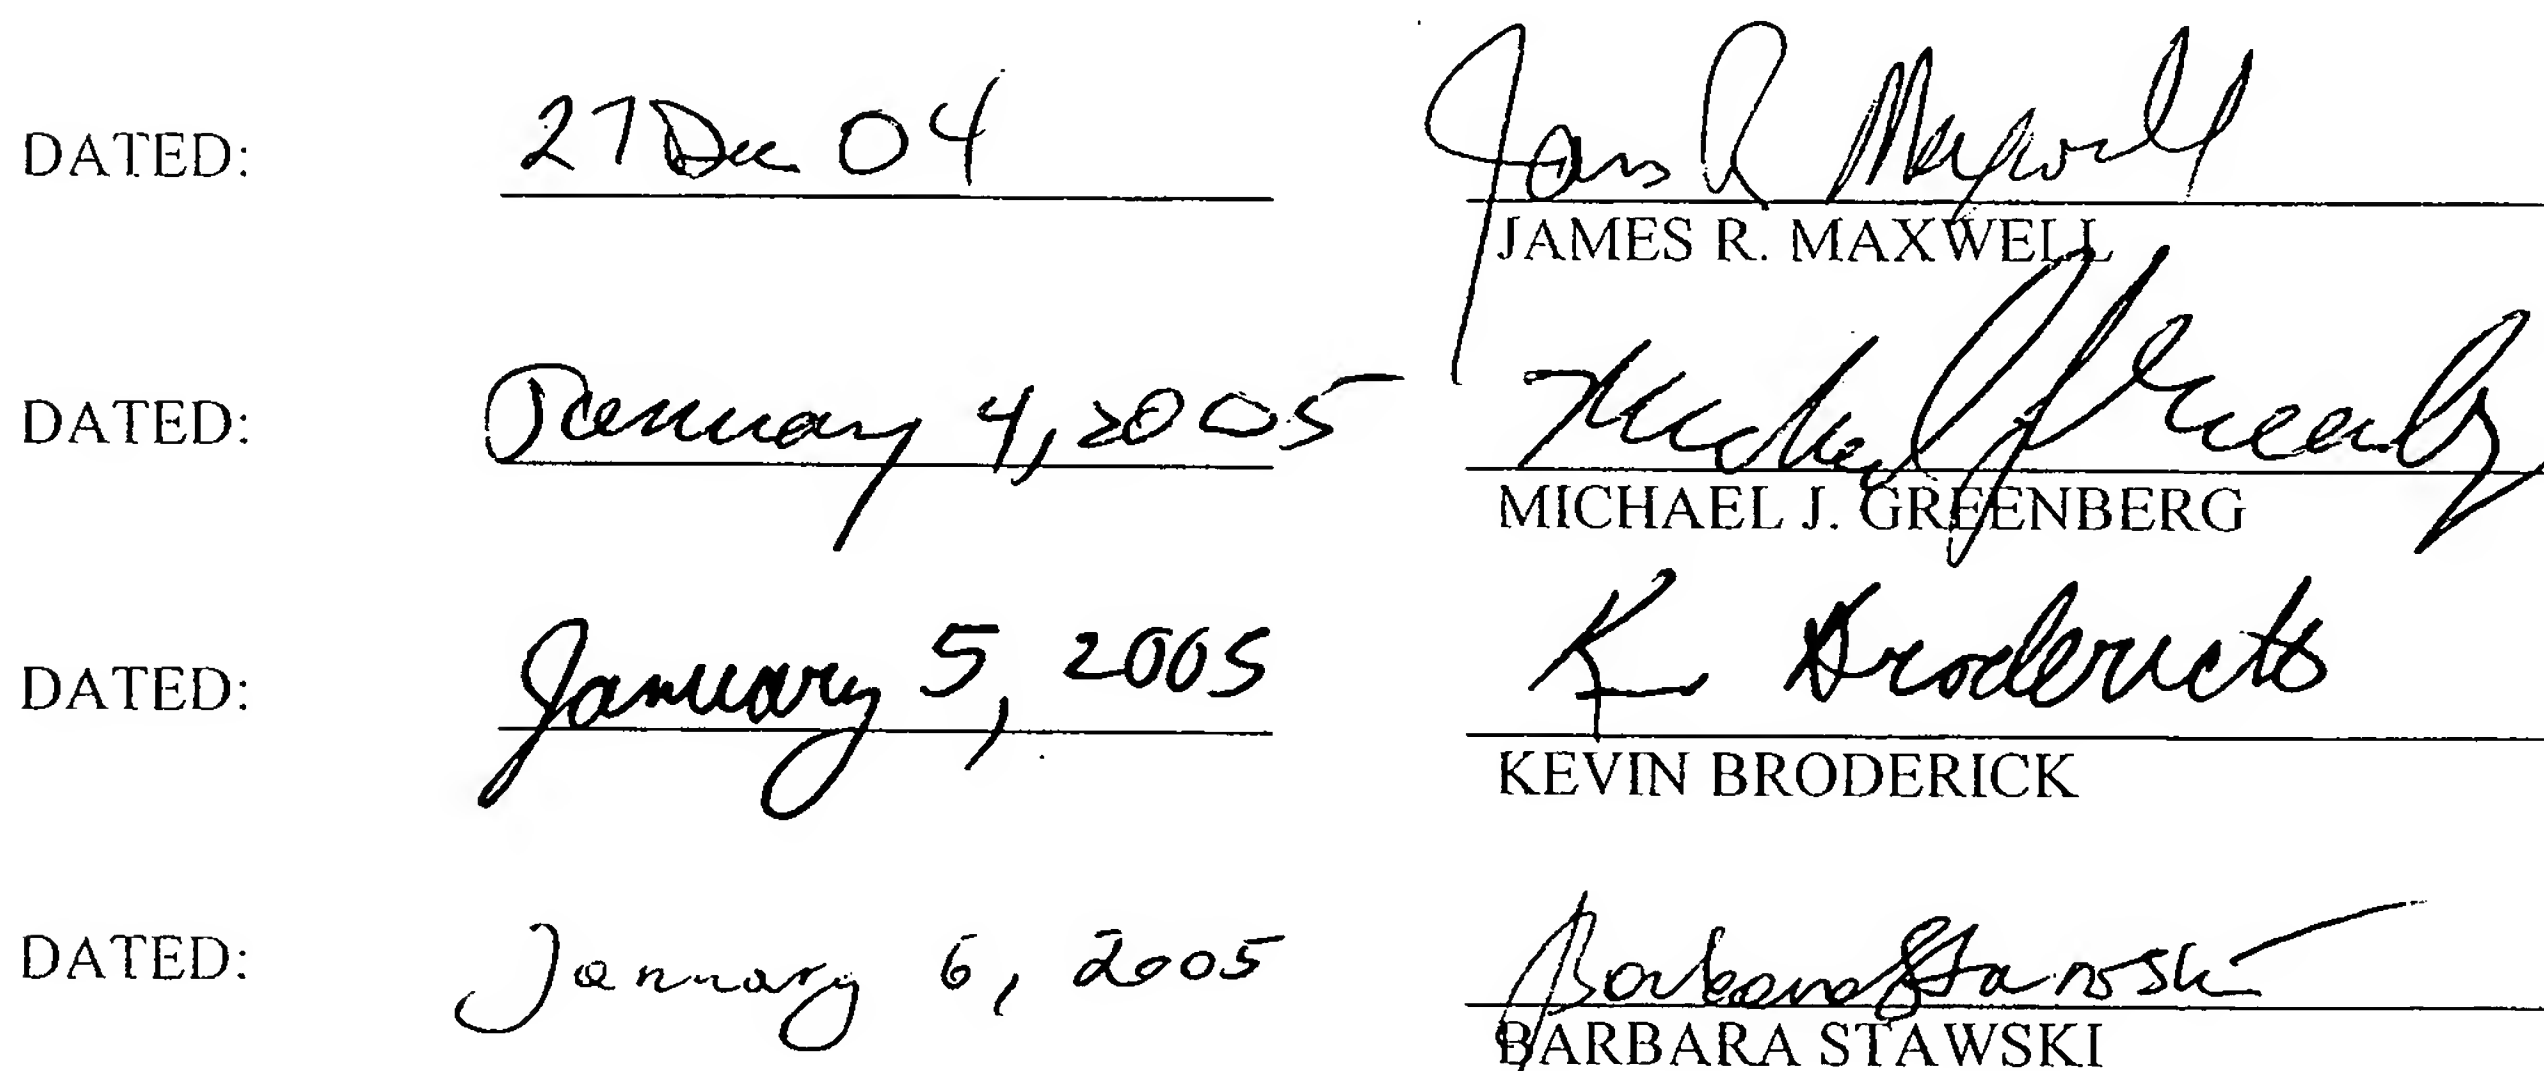 DATED: 27 Dec 04 James R Maxwell
JAMES R. MAXWELL
DATED: January 4, 2005 Michael J Greenberg
MICHAEL J. GREENBERG
DATED: January 5, 2005 K Broderick
KEVIN BRODERICK
DATED: January 6, 2005 Barbara Stawski
BARBARA STAWSKI